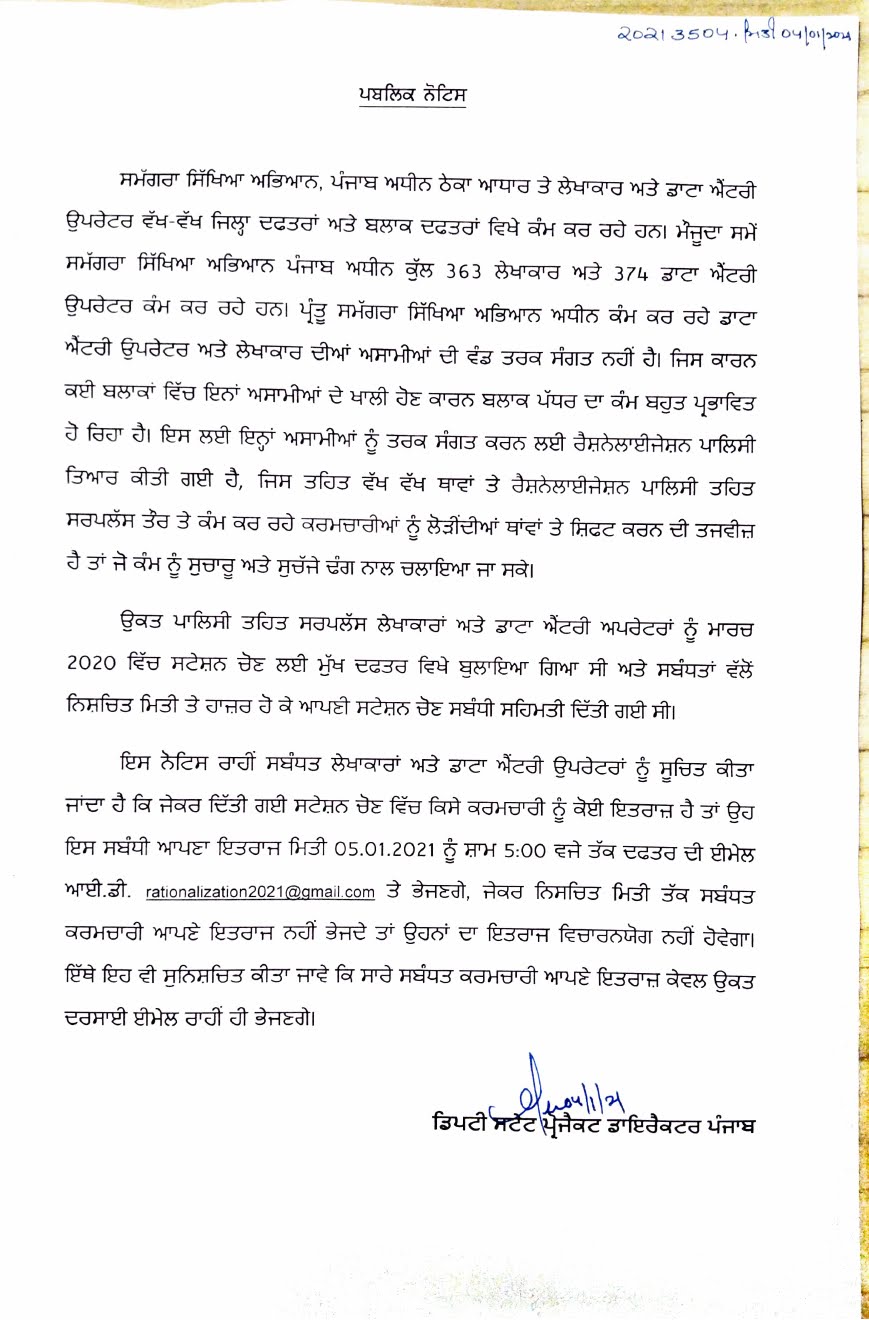 20213504. ਮਿਤੀ 04/01/2021
ਪਬਲਿਕ ਨੋਟਿਸ
ਸਮੱਗਰਾ ਸਿੱਖਿਆ ਅਭਿਆਨ, ਪੰਜਾਬ ਅਧੀਨ ਠੇਕਾ ਆਧਾਰ ਤੇ ਲੇਖਾਕਾਰ ਅਤੇ ਡਾਟਾ ਐਂਟਰੀ
ਉਪਰੇਟਰ ਵੱਖ-ਵੱਖ ਜਿਲ੍ਹਾ ਦਫਤਰਾਂ ਅਤੇ ਬਲਾਕ ਦਫਤਰਾਂ ਵਿਖੇ ਕੰਮ ਕਰ ਰਹੇ ਹਨ। ਮੌਜੂਦਾ ਸਮੇਂ
ਸਮੱਗਰਾ ਸਿੱਖਿਆ ਅਭਿਆਨ ਪੰਜਾਬ ਅਧੀਨ ਕੁੱਲ 363 ਲੇਖਾਕਾਰ ਅਤੇ 374 ਡਾਟਾ ਐਂਟਰੀ
ਉਪਰੇਟਰ ਕੰਮ ਕਰ ਰਹੇ ਹਨ। ਪ੍ਰੰਤੂ ਸਮੱਗਰਾ ਸਿੱਖਿਆ ਅਭਿਆਨ ਅਧੀਨ ਕੰਮ ਕਰ ਰਹੇ ਡਾਟਾ
ਐਂਟਰੀ ਉਪਰੇਟਰ ਅਤੇ ਲੇਖਾਕਾਰ ਦੀਆਂ ਅਸਾਮੀਆਂ ਦੀ ਵੰਡ ਤਰਕ ਸੰਗਤ ਨਹੀਂ ਹੈ। ਜਿਸ ਕਾਰਨ
ਕਈ ਬਲਾਕਾਂ ਵਿੱਚ ਇਨਾਂ ਅਸਾਮੀਆਂ ਦੇ ਖਾਲੀ ਹੋਣ ਕਾਰਨ ਬਲਾਕ ਪੱਧਰ ਦਾ ਕੰਮ ਬਹੁਤ ਪ੍ਰਭਾਵਿਤ
ਹੋ ਰਿਹਾ ਹੈ। ਇਸ ਲਈ ਇਨ੍ਹਾਂ ਅਸਾਮੀਆਂ ਨੂੰ ਤਰਕ ਸੰਗਤ ਕਰਨ ਲਈ ਰੈਸ਼ਨੇਲਾਈਜੇਸ਼ਨ ਪਾਲਿਸੀ
ਤਿਆਰ ਕੀਤੀ ਗਈ ਹੈ, ਜਿਸ ਤਹਿਤ ਵੱਖ ਵੱਖ ਥਾਵਾਂ ਤੇ ਰੈਸ਼ਨੇਲਾਈਜੇਸ਼ਨ ਪਾਲਿਸੀ ਤਹਿਤ
ਸਰਪਲੱਸ ਤੌਰ ਤੇ ਕੰਮ ਕਰ ਰਹੇ ਕਰਮਚਾਰੀਆਂ ਨੂੰ ਲੋੜੀਂਦੀਆਂ ਥਾਂਵਾਂ ਤੇ ਸ਼ਿਫਟ ਕਰਨ ਦੀ ਤਜਵੀਜ਼
ਹੈ ਤਾਂ ਜੋ ਕੰਮ ਨੂੰ ਸੁਚਾਰੂ ਅਤੇ ਸੁਚੱਜੇ ਢੰਗ ਨਾਲ ਚਲਾਇਆ ਜਾ ਸਕੇ।
ਉਕਤ ਪਾਲਿਸੀ ਤਹਿਤ ਸਰਪਲੱਸ ਲੇਖਾਕਾਰਾਂ ਅਤੇ ਡਾਟਾ ਐਂਟਰੀ ਅਪਰੇਟਰਾਂ ਨੂੰ ਮਾਰਚ
2020 ਵਿੱਚ ਸਟੇਸ਼ਨ ਚੋਣ ਲਈ ਮੁੱਖ ਦਫਤਰ ਵਿਖੇ ਬੁਲਾਇਆ ਗਿਆ ਸੀ ਅਤੇ ਸਬੰਧਤਾਂ ਵੱਲੋਂ
ਨਿਸ਼ਚਿਤ ਮਿਤੀ ਤੇ ਹਾਜ਼ਰ ਹੋ ਕੇ ਆਪਣੀ ਸਟੇਸ਼ਨ ਚੋਣ ਸਬੰਧੀ ਸਹਿਮਤੀ ਦਿੱਤੀ ਗਈ ਸੀ।
ਇਸ ਨੋਟਿਸ ਰਾਹੀਂ ਸਬੰਧਤ ਲੇਖਾਕਾਰਾਂ ਅਤੇ ਡਾਟਾ ਐਂਟਰੀ ਉਪਰੇਟਰਾਂ ਨੂੰ ਸੂਚਿਤ ਕੀਤਾ
ਜਾਂਦਾ ਹੈ ਕਿ ਜੇਕਰ ਦਿੱਤੀ ਗਈ ਸਟੇਸ਼ਨ ਚੋਣ ਵਿੱਚ ਕਿਸੇ ਕਰਮਚਾਰੀ ਨੂੰ ਕੋਈ ਇਤਰਾਜ਼ ਹੈ ਤਾਂ ਉਹ
ਇਸ ਸਬੰਧੀ ਆਪਣਾ ਇਤਰਾਜ਼ ਮਿਤੀ 05.01.2021 ਨੂੰ ਸ਼ਾਮ 5:00 ਵਜੇ ਤੱਕ ਦਫਤਰ ਦੀ ਈਮੇਲ
ਆਈ.ਡੀ. rationalization2021@gmail.com ਤੇ ਭੇਜਣਗੇ, ਜੇਕਰ ਨਿਸਚਿਤ ਮਿਤੀ ਤੱਕ ਸਬੰਧਤ
ਕਰਮਚਾਰੀ ਆਪਣੇ ਇਤਰਾਜ ਨਹੀਂ ਭੇਜਦੇ ਤਾਂ ਉਹਨਾਂ ਦਾ ਇਤਰਾਜ਼ ਵਿਚਾਰਨਯੋਗ ਨਹੀਂ ਹੋਵੇਗਾ।
ਇੱਥੇ ਇਹ ਵੀ ਸੁਨਿਸ਼ਚਿਤ ਕੀਤਾ ਜਾਵੇ ਕਿ ਸਾਰੇ ਸਬੰਧਤ ਕਰਮਚਾਰੀ ਆਪਣੇ ਇਤਰਾਜ਼ ਕੇਵਲ ਉਕਤ
ਦਰਸਾਈ ਈਮੇਲ ਰਾਹੀਂ ਹੀ ਭੇਜਣਗੇ।
04/1/21
ਡਿਪਟੀ ਸਟੇਟ ਪ੍ਰੋਜੈਕਟ ਡਾਇਰੈਕਟਰ ਪੰਜਾਬ